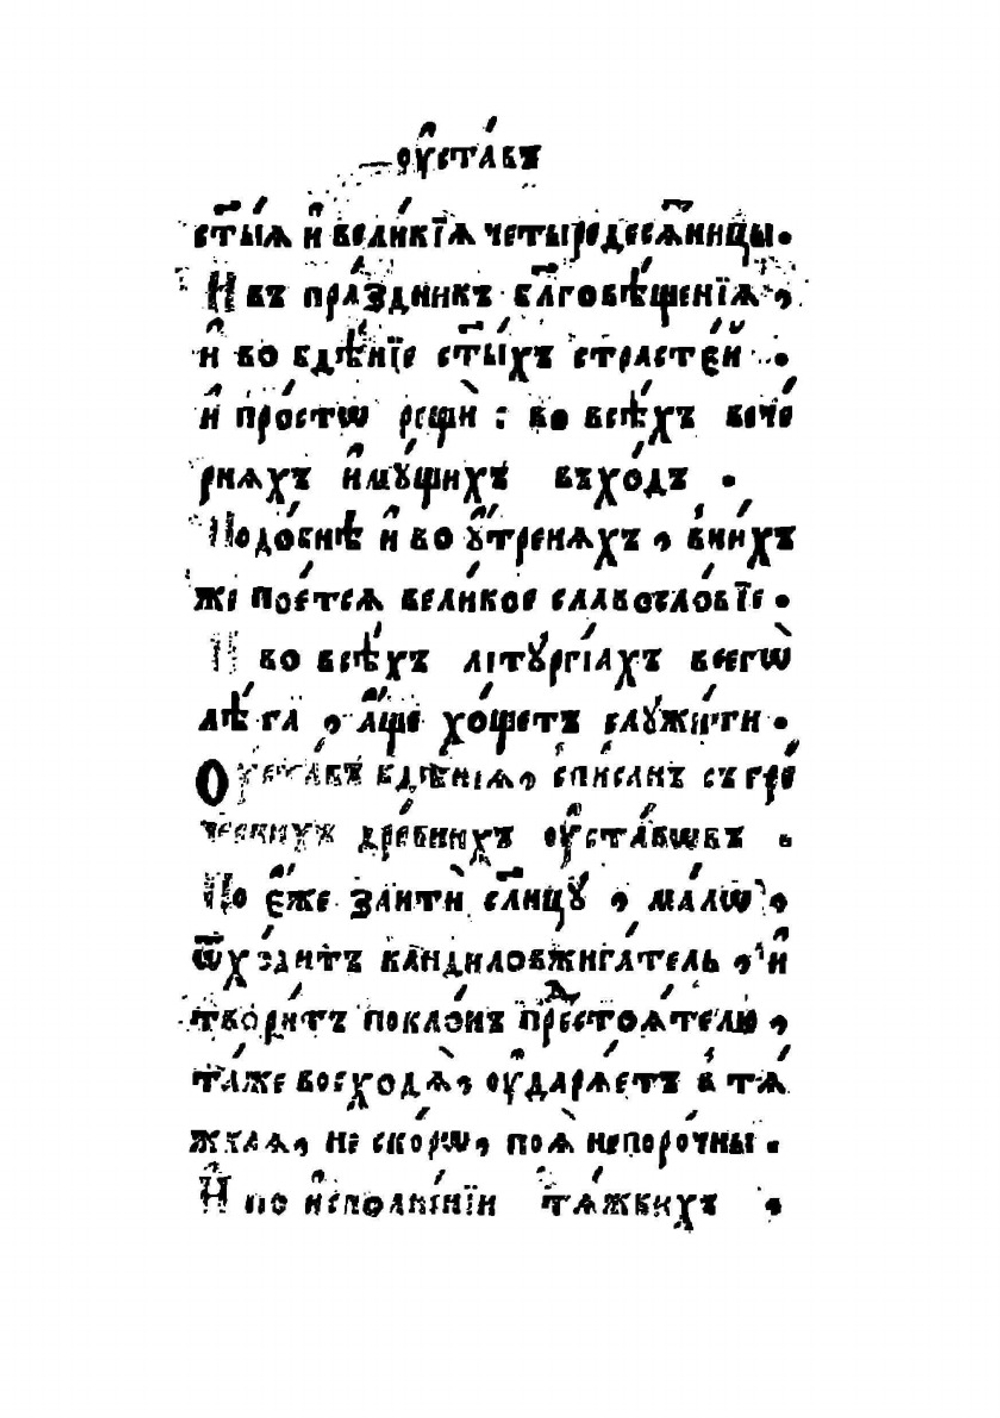 ᲂу҆ста́въ
ст҃ы́ѧ и҆ вели́кїѧ четыредесѧ́тницы.
И҆ въ пра́здникъ бл҃говѣ́щенїѧ,
и҆ во бдѣ́нїе ст҃ы́хъ страсте́й .
и҆ про́стѡ рещѝ : во всѣ́хъ вече́
рнѧхъ и҆мꙋ́щихъ вхо́дъ .
Подо́бнѣ и҆ во ᲂу҆́тренѧхъ, в̾ни́хъ
же пое́тсѧ вели́кое славосло́вїе .
И҆ во всѣ́хъ літꙋргі́ахъ всегѡ̀
лѣ́та, а҆́ще хо́щетъ слꙋжи́ти .
Оу҆ста́въ бдѣ́нїѧ, спи́санъ съ гре́
ческихъ дре́внихъ ᲂу҆ста́вѡвъ .
По є҆́же заитѝ сл҃нцꙋ̀, ма́лѡ,
ѿхо́дитъ кандиловжига́тель, и҆
твори́тъ покло́нъ предстоѧ́телю,
та́же восходѧ̀, ᲂу҆дарѧ́етъ в̾ тѧ́
жкаѧ, не ско́рѡ, поѧ̀ непоро́чны .
И҆ по и҆сполне́нїи тѧ́жкихъ .